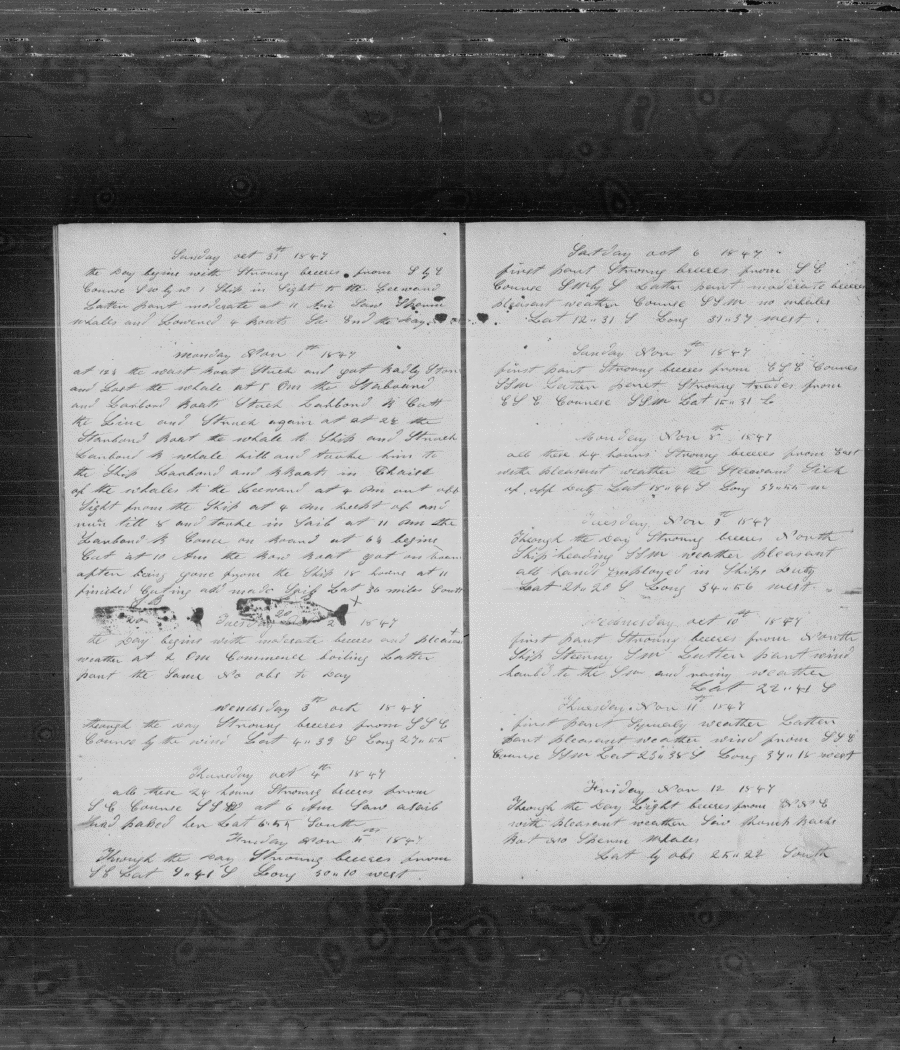 Sunday oct 31th 1847
the Day begins with Stroung breeres from S by E
Course S W by W 1 Ship in Sight to the Leeward
Latter part moderate at 11 Am Saw Sperm
whales and Lowered 4 Boats So End the Day
monday Nov 1th 1847
at 12½ the wast Boat Struck and got Badly Stove
and Lost the whale at 1 Pm the Starbourd
and Larbord Boats Struck Larbord B Cutt
the Line and Struck again at at 2½ the
Starbord Boat the whale to Ship and Struck
Larbord B whale kill and tooke him to
the Ship Larbord and B Boats in Chaise
of the whales to the Leeward at 4 Am out off
Sight from the Ship at 4 Am keept of and
run till 8 and tooke in Sail at 11 Am the
Larbord B Come on Board at 6½ begins
Cut at 10 Am the Bow Boat got on board
after being gone from the Ship 18 hours at 11
finished Cuting all made Sail Lat 36 miles South
Tuesday 2 1847
the Day begins with moderate breeres and pleasant
weather at 2 Pm Commence boiling Latter
part the Same No obs to Day
wendsday 3th oct 1847
through the Day Stroung breeres from S S E
Course by the wind Lat 4"39 S Long 29"55
Thursday oct 4th 1847
all these 24 hours Stroung breeres from
S E Course S S W at 6 Am Saw a Sail
Lat 6"55 South
Friday Nov 5th 1847
Through the Day Stroung breeres from
S E Lat 9"41 S Long 30"10 west
Satday oct 6 1847
first part Stroung breeres from S E
Course S W by S Latter part moderate breeres
pleasant weather Course S S W no whales
Lat 12"31 S Long 31"37 west
Sunday Nov 7th 1847
first part Stroung breeres from E S E Course
S S W Latter part Stroung trades from
E S E Course S S W Lat 15"31 S
Monday Nov 8th 1847
all these 24 hours Stroung breeres from East
with pleasant weather the Steward Sick
of off Duty Lat 18"44 S Long 33"55 w
Tuesday Nov 9th 1847
Through the Day Stroung breeres North
Ship heading S S W weather pleasant
all hand Employed in Ships Duty
Lat 21"20 S Long 34"56 west
Wednesday oct 10th 1847
first part Stroung breeres from North
Ship Steering S W Latter part wind
hauld to the S W and rainy weather
Lat 22"41 S
Thursday Nov 11th 1847
first part Squaly weather Latter
part pleasant weather wind from S S E
Course S S W Lat 23"38 S Long 37"18 west
Friday Nov 12 1847
Through the Day Light breeres from N N E
with pleasant weather Saw hump backs
But No Sperm Whales
Lat by obs 25"22 South